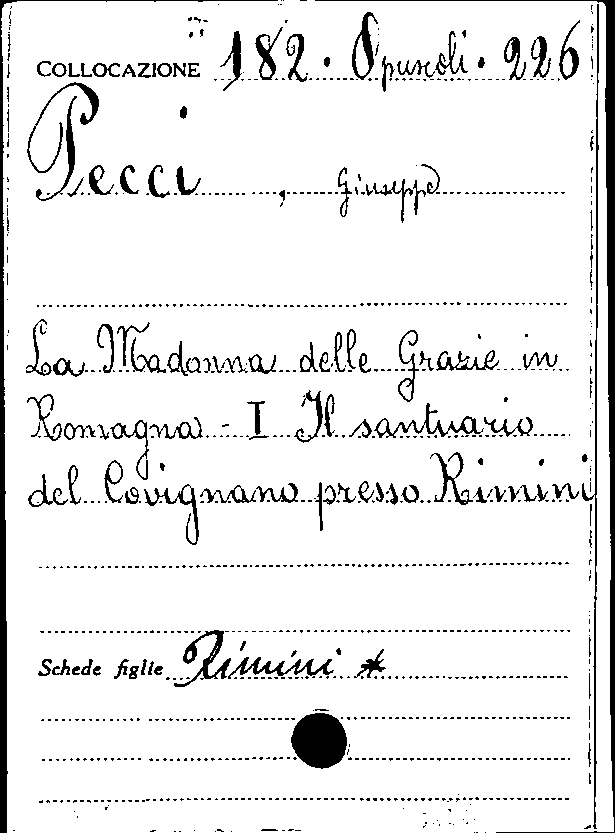 COLLOCAZIONE 182. Opuscoli. 226
Pecci, Giuseppe
La Madonna delle Grazie in
Romagna - I Il santuario
del Covignano presso Rimini
Schede figlie Rimini *